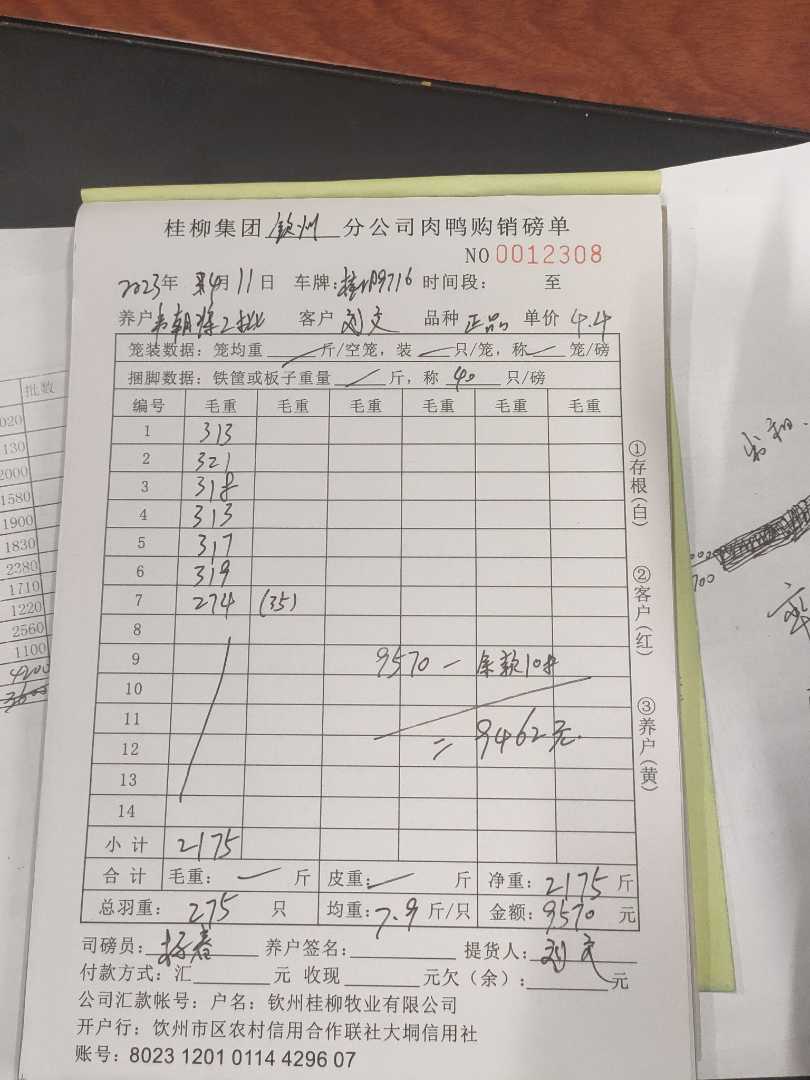 桂柳集团 钦州 分公司肉鸭购销磅单
NO 0012308
2023年 4月 11日 车牌: 9716 时间段: 至
养户 韦朝 客户 刘文 品种 正品 单价 4.4
笼装数据: 笼均重 斤/空笼, 装 只/笼, 称 笼/磅
捆脚数据: 铁筐或板子重量 斤, 称 40 只/磅
编号 毛重 毛重 毛重 毛重 毛重 毛重
1 313
2 321
3 318
4 313
5 317
6 319
7 274 (35)
8
9 9570 — 余款108
10
11
12 = 9462元.
13
14
小计 2175
合计 毛重: 斤 皮重: 斤 净重: 2175 斤
总羽重: 275 只 均重: 7.9 斤/只 金额: 9570 元
司磅员: 杨春 养户签名: 提货人: 刘文
付款方式: 汇 元 收现 元欠(余): 元
公司汇款帐号: 户名: 钦州桂柳牧业有限公司
开户行: 钦州市区农村信用合作联社大垌信用社
账号: 8023 1201 0114 4296 07
①存根(白)
②客户(红)
③养户(黄)
批数
020
130
2000
1580
1900
1830
2380
1710
1220
2560
1100
4200
3600
700